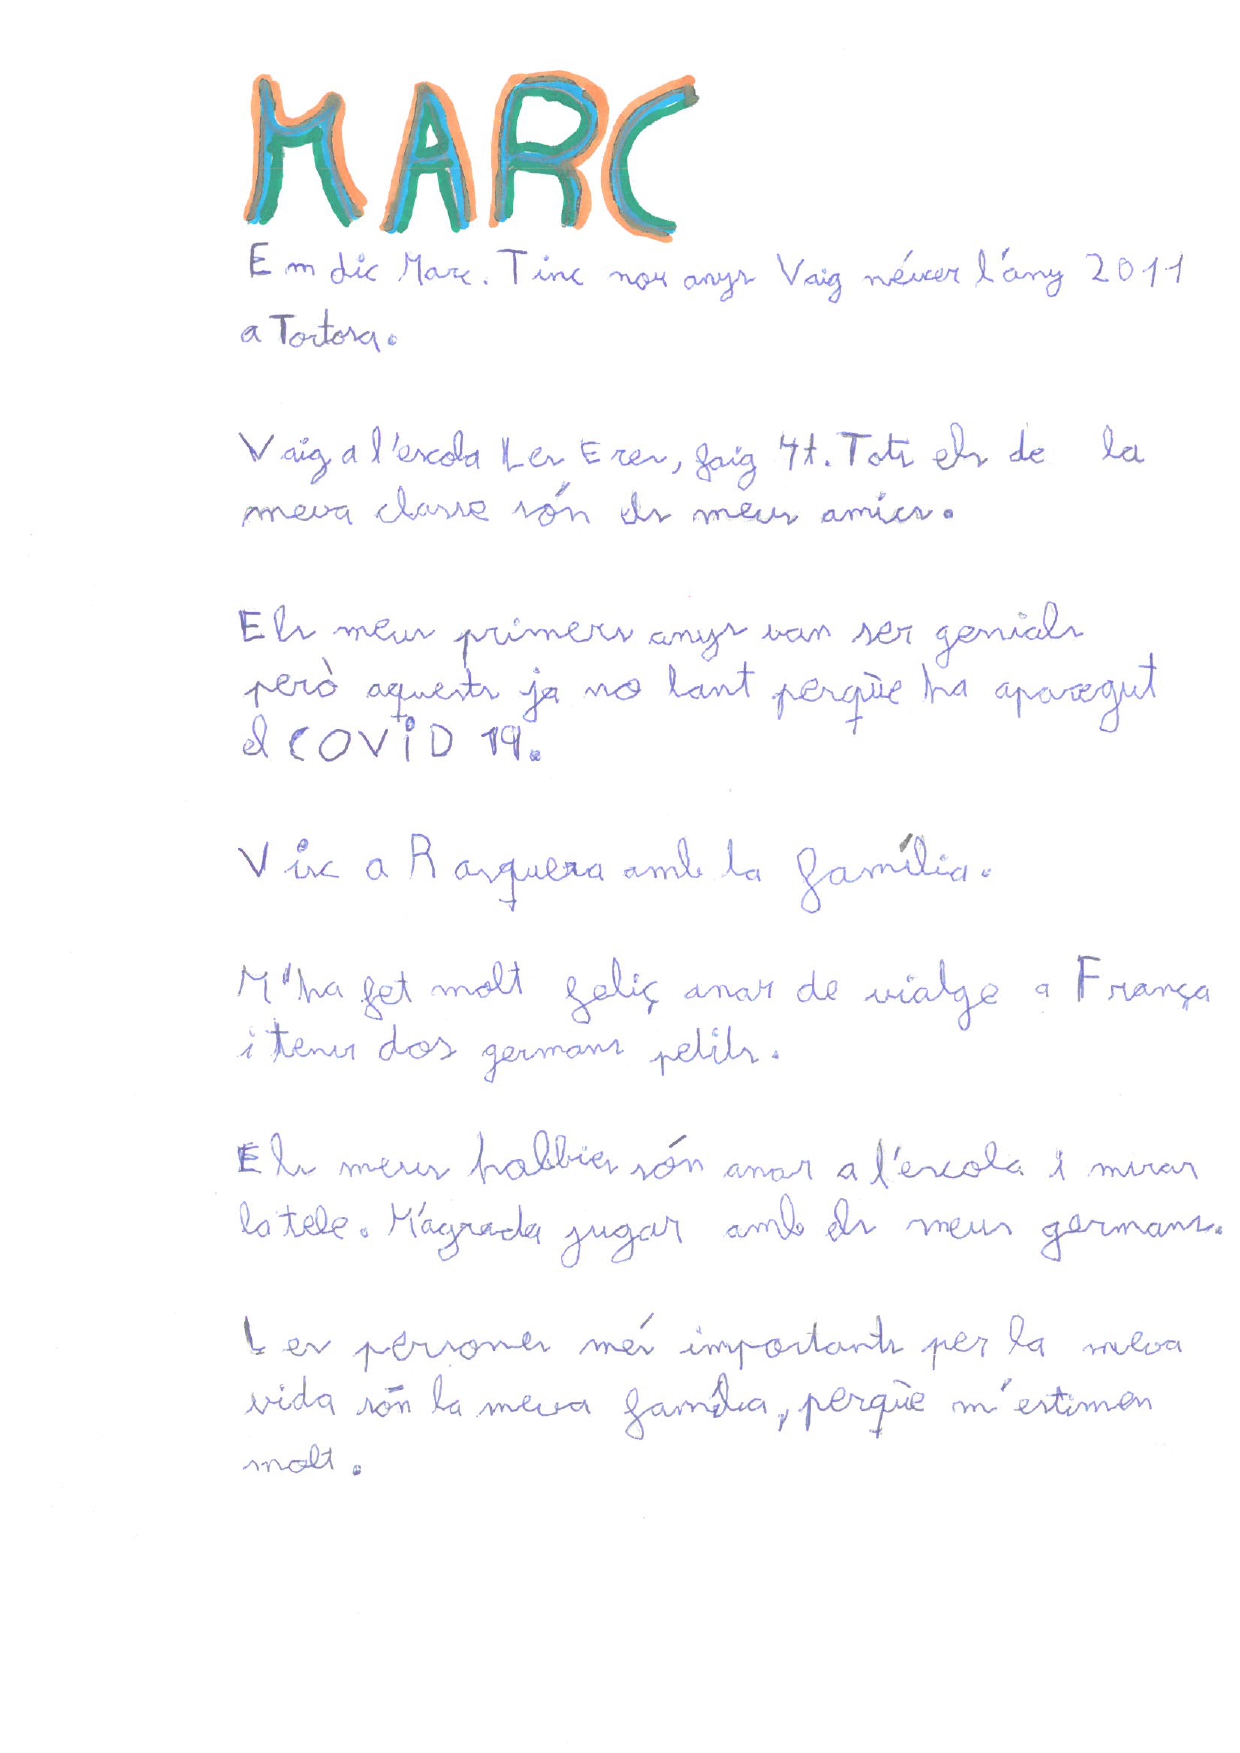 MARC
Em dic Marc. Tinc nou anys Vaig néixer l'any 2011
a Tortosa.
Vaig a l'escola Les Eres, faig 4t. Tots els de la
meva classe són els meus amics.
Els meus primers anys van ser genials
però aquests ja no tant perquè ha aparegut
el COVID 19.
Visc a Rasquera amb la família.
M'ha fet molt feliç anar de viatge a França
i tenir dos germans petits.
Els meus hobbies són anar a l'escola i mirar
la tele. M'agrada jugar amb els meus germans.
Les persones més importants per la meva
vida són la meva família, perquè m'estimen
molt.